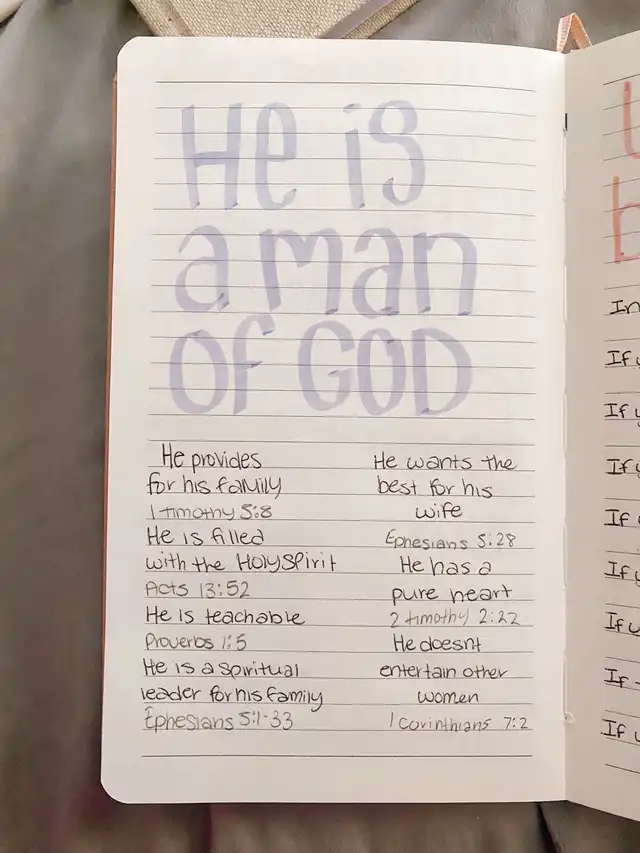 He is
a man
OF GOD
He provides
for his family
1 timothy 5:8
He is filled
with the HOLYSPIRIT
Acts 13:52
He is teachable
Proverbs 1:5
He is a spiritual
leader for his family
Ephesians 5:1-33
He wants the
best for his
wife
Ephesians 5:28
He has a
pure heart
2 timothy 2:22
He doesnt
entertain other
women
1 Corinthians 7:2
In
If y
If y
If y
If
If y
If u
If
If u